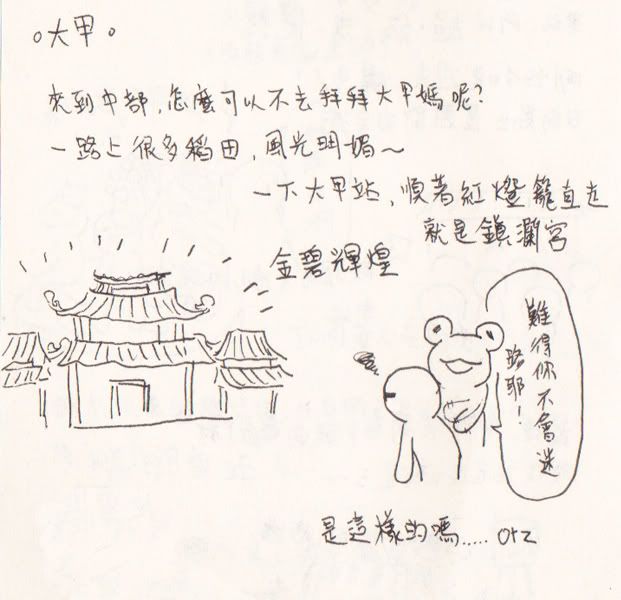 。大甲。
來到中部,怎麼可以不去拜拜大甲媽呢?
一路上很多稻田,風光明媚~
一下大甲站,順著紅燈籠直走
就是鎮瀾宮
金碧輝煌
難得你不會迷
路耶!
是這樣的嗎..... orz